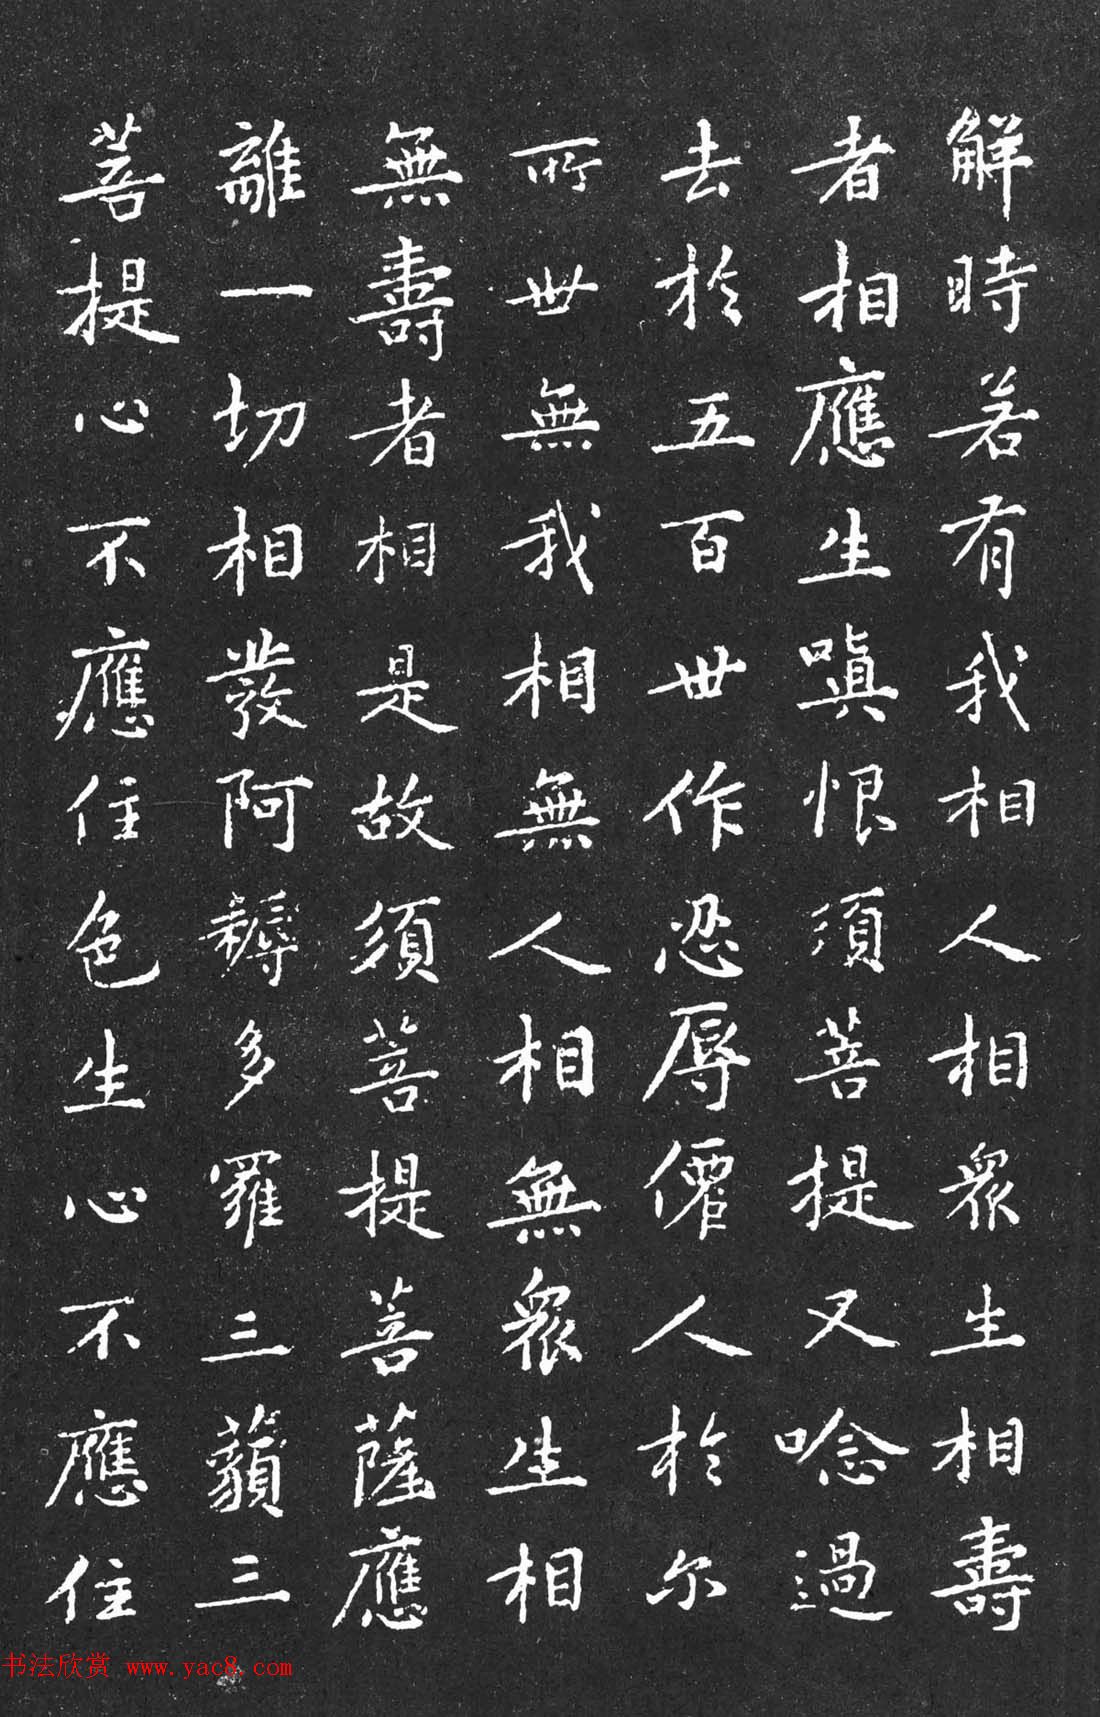 解時若有我相人相眾生相壽
者相應生嗔恨須菩提又唸過
去於五百世作忍辱僊人於尔
所世無我相無人相無眾生相
無壽者相是故須菩提菩薩應
離一切相發阿耨多羅三藐三
菩提心不應住色生心不應住
书法欣赏 www.yac8.com